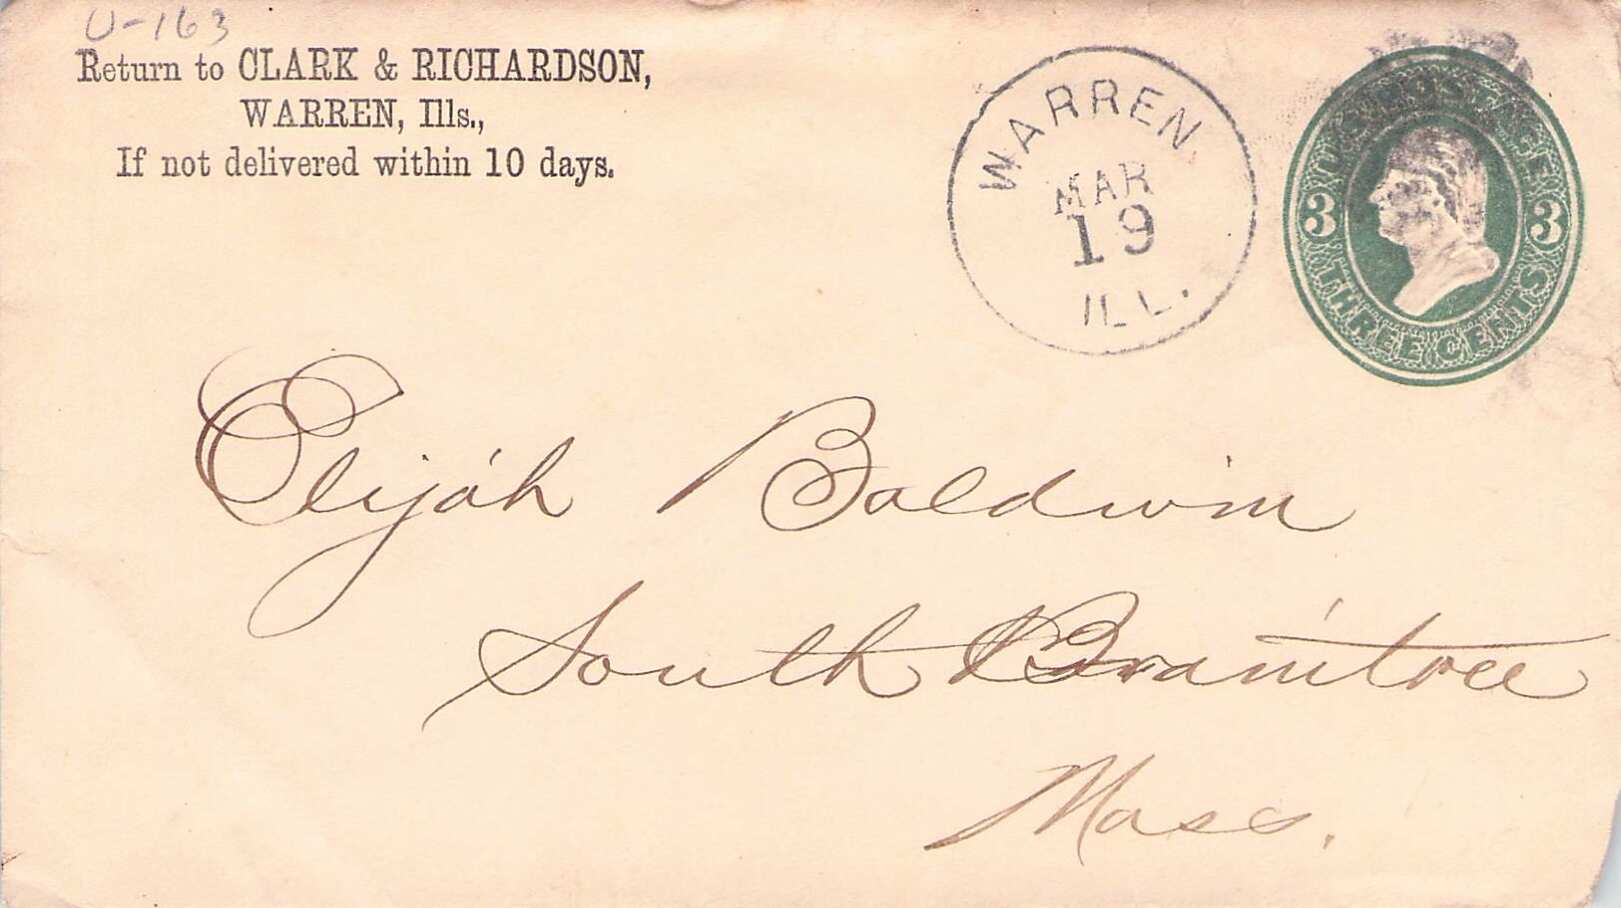 U-163
Return to CLARK & RICHARDSON,
WARREN, Ills.,
If not delivered within 10 days.
WARREN
MAR
19
ILL.
U.S. POSTAGE
3 3
THREE CENTS
Elijah Baldwin
South Braintree
Mass.